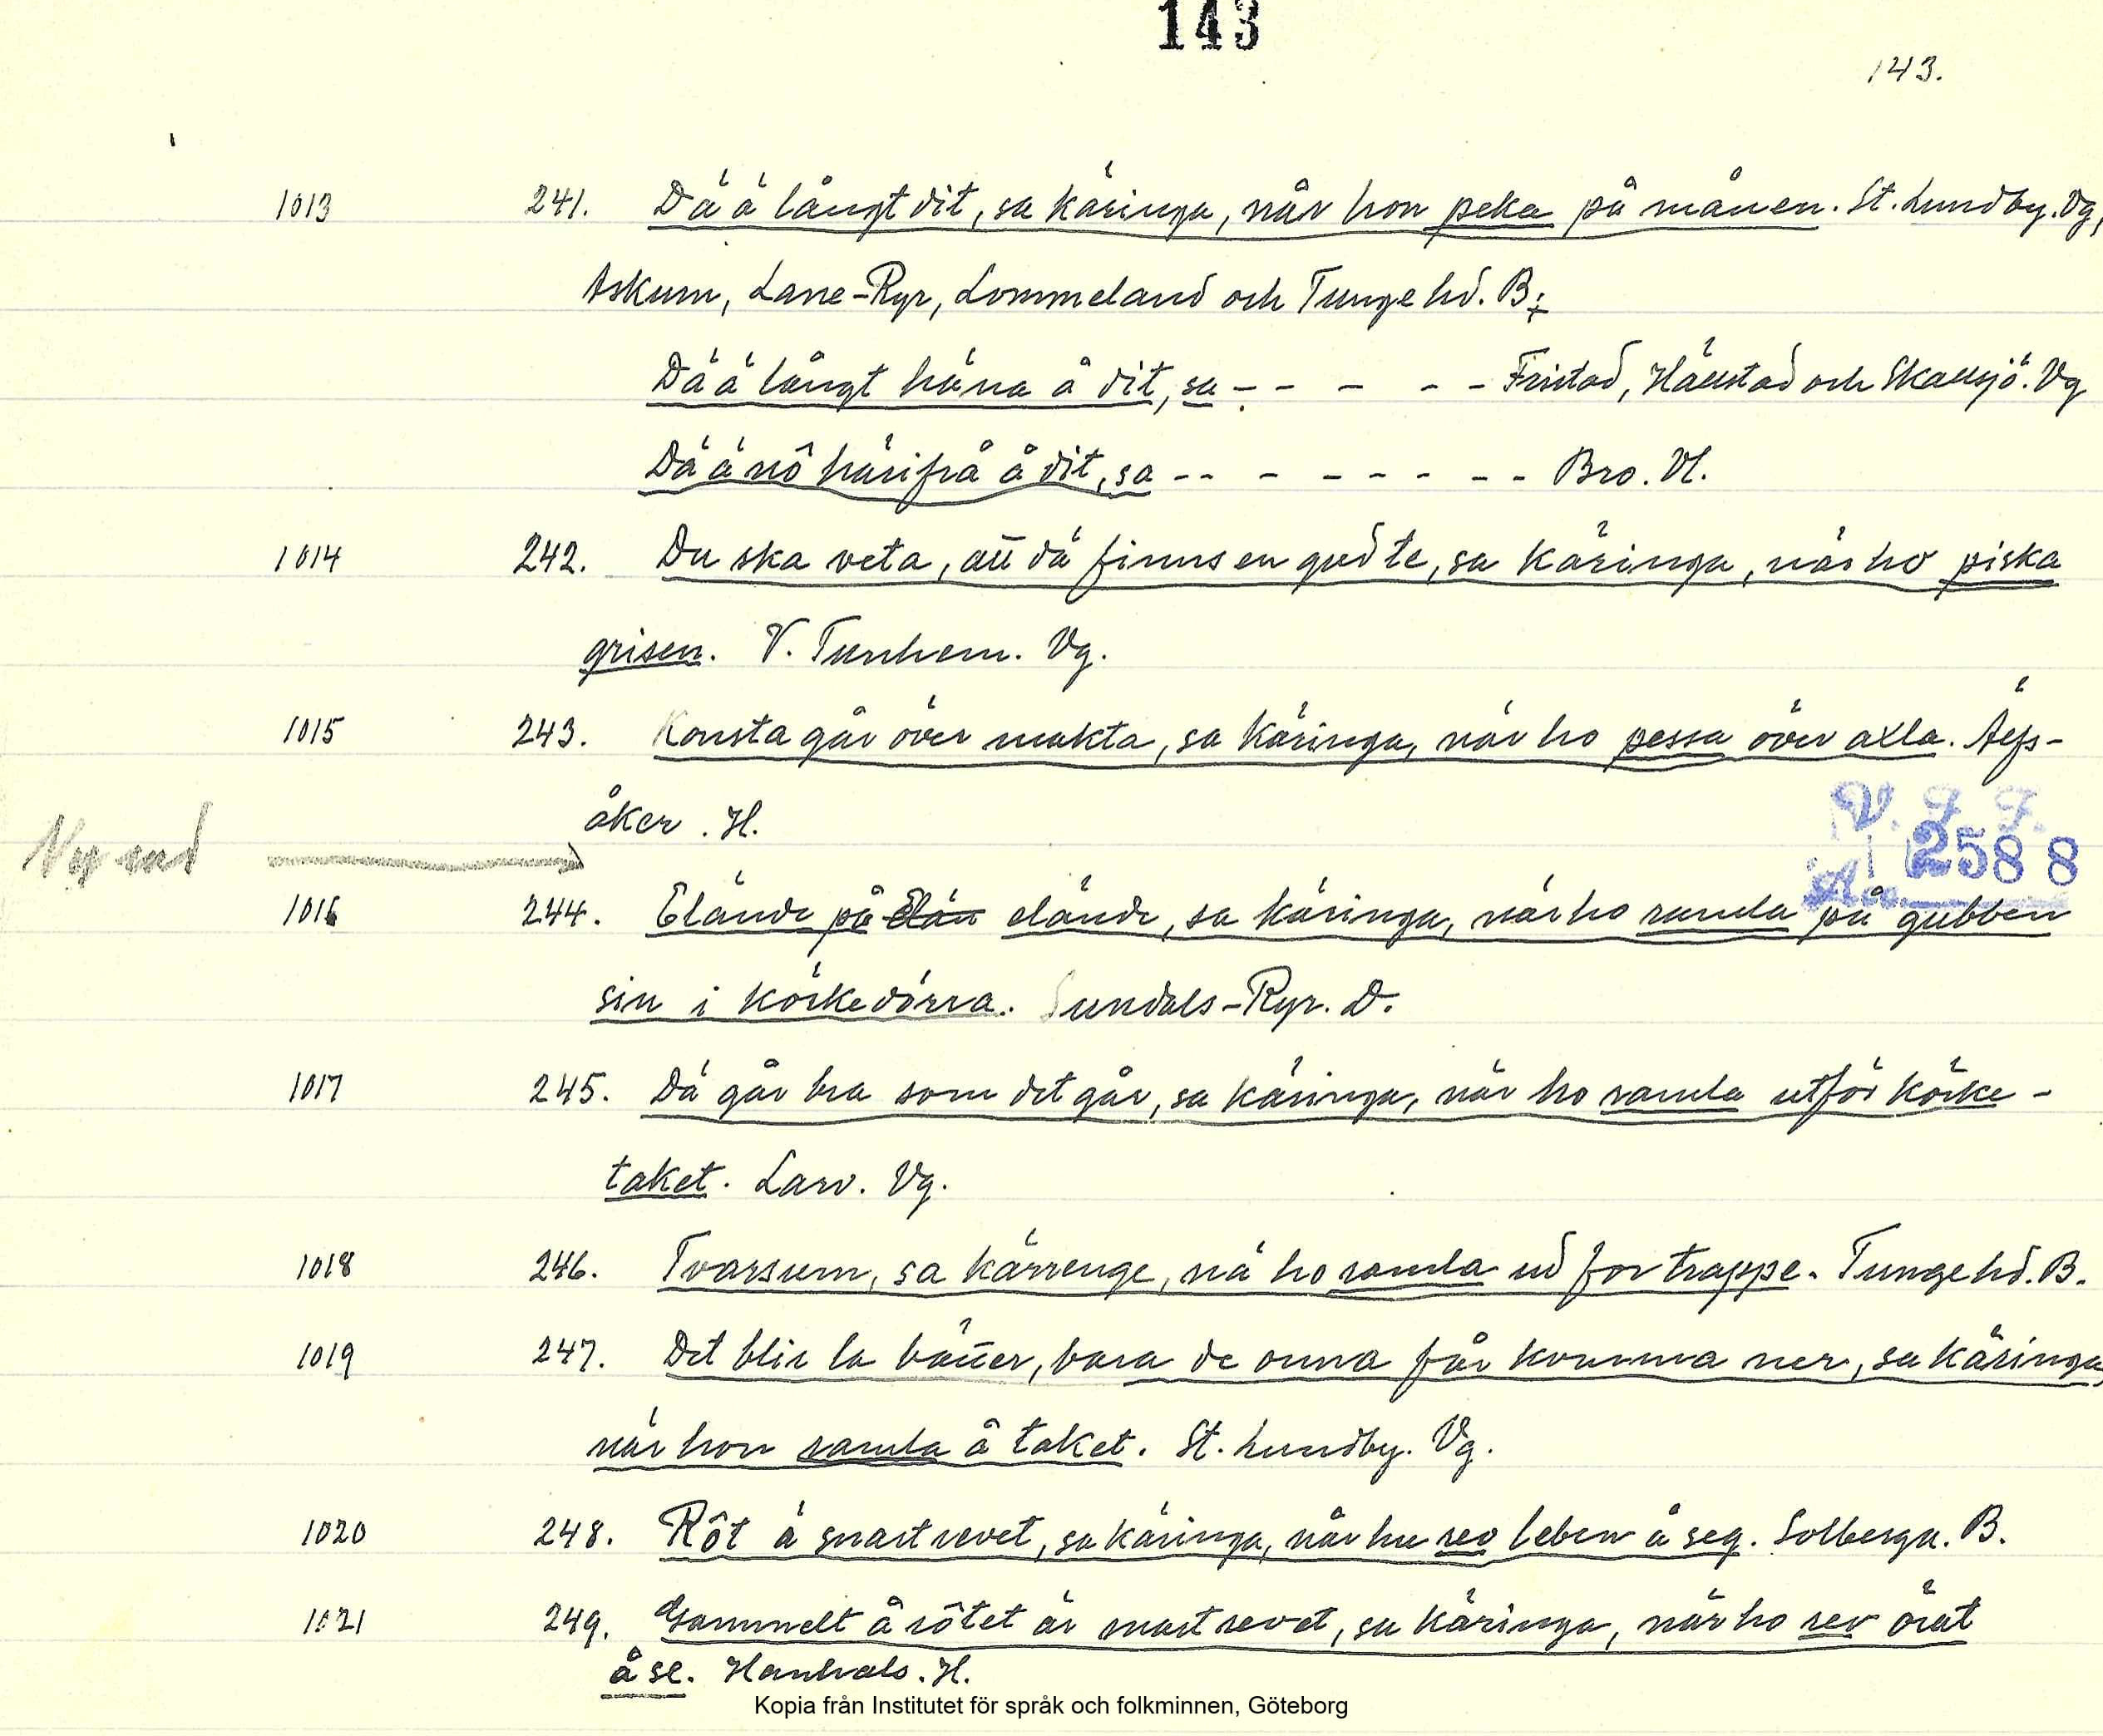 143
143.
1013 241. Dä ä långt dit, sa käringa, när hon peka på månen. St. Lundby. Vg,
Askum, Lane-Ryr, Lommeland och Tunge hd. B;
Dä ä långt häna å dit, sa - - - - - Fristad, Hällstad och Skallsjö. Vg
Dä ä nô härifrå å dit, sa - - - - - - - - Bro. Vl.
1014 242. Du ska veta, att dä finns en gud te, sa käringa, när ho piska
grisen. V. Tunhem. Vg.
1015 243. Konsta går över makta, sa käringa, när ho pessa över axla. Älfs-
åker. H.
V. F. F.
Ny rad 2588
1016 244. Elände på elän elände, sa käringa, när ho ramla på gubben
sin i körkedörra. Sundals-Ryr. D.
1017 245. Dä går bra som det går, sa käringa, när ho ramla utför körke-
taket. Larv. Vg.
1018 246. Tvarsum, sa kärrenge, nä ho ramla ud for trappe. Tunge hd. B.
1019 247. Det blir la bätter, bara de onna får komma ner, sa käringa,
när hon ramla å taket. St. Lundby. Vg.
1020 248. Rôt ä snart revet, sa käringa, når hu rev leben å seg. Solberga. B.
1021 249. Gammelt å rôtet är snart revet, sa käringa, när ho rev örat
å se. Hanhals. H.
Kopia från Institutet för språk och folkminnen, Göteborg